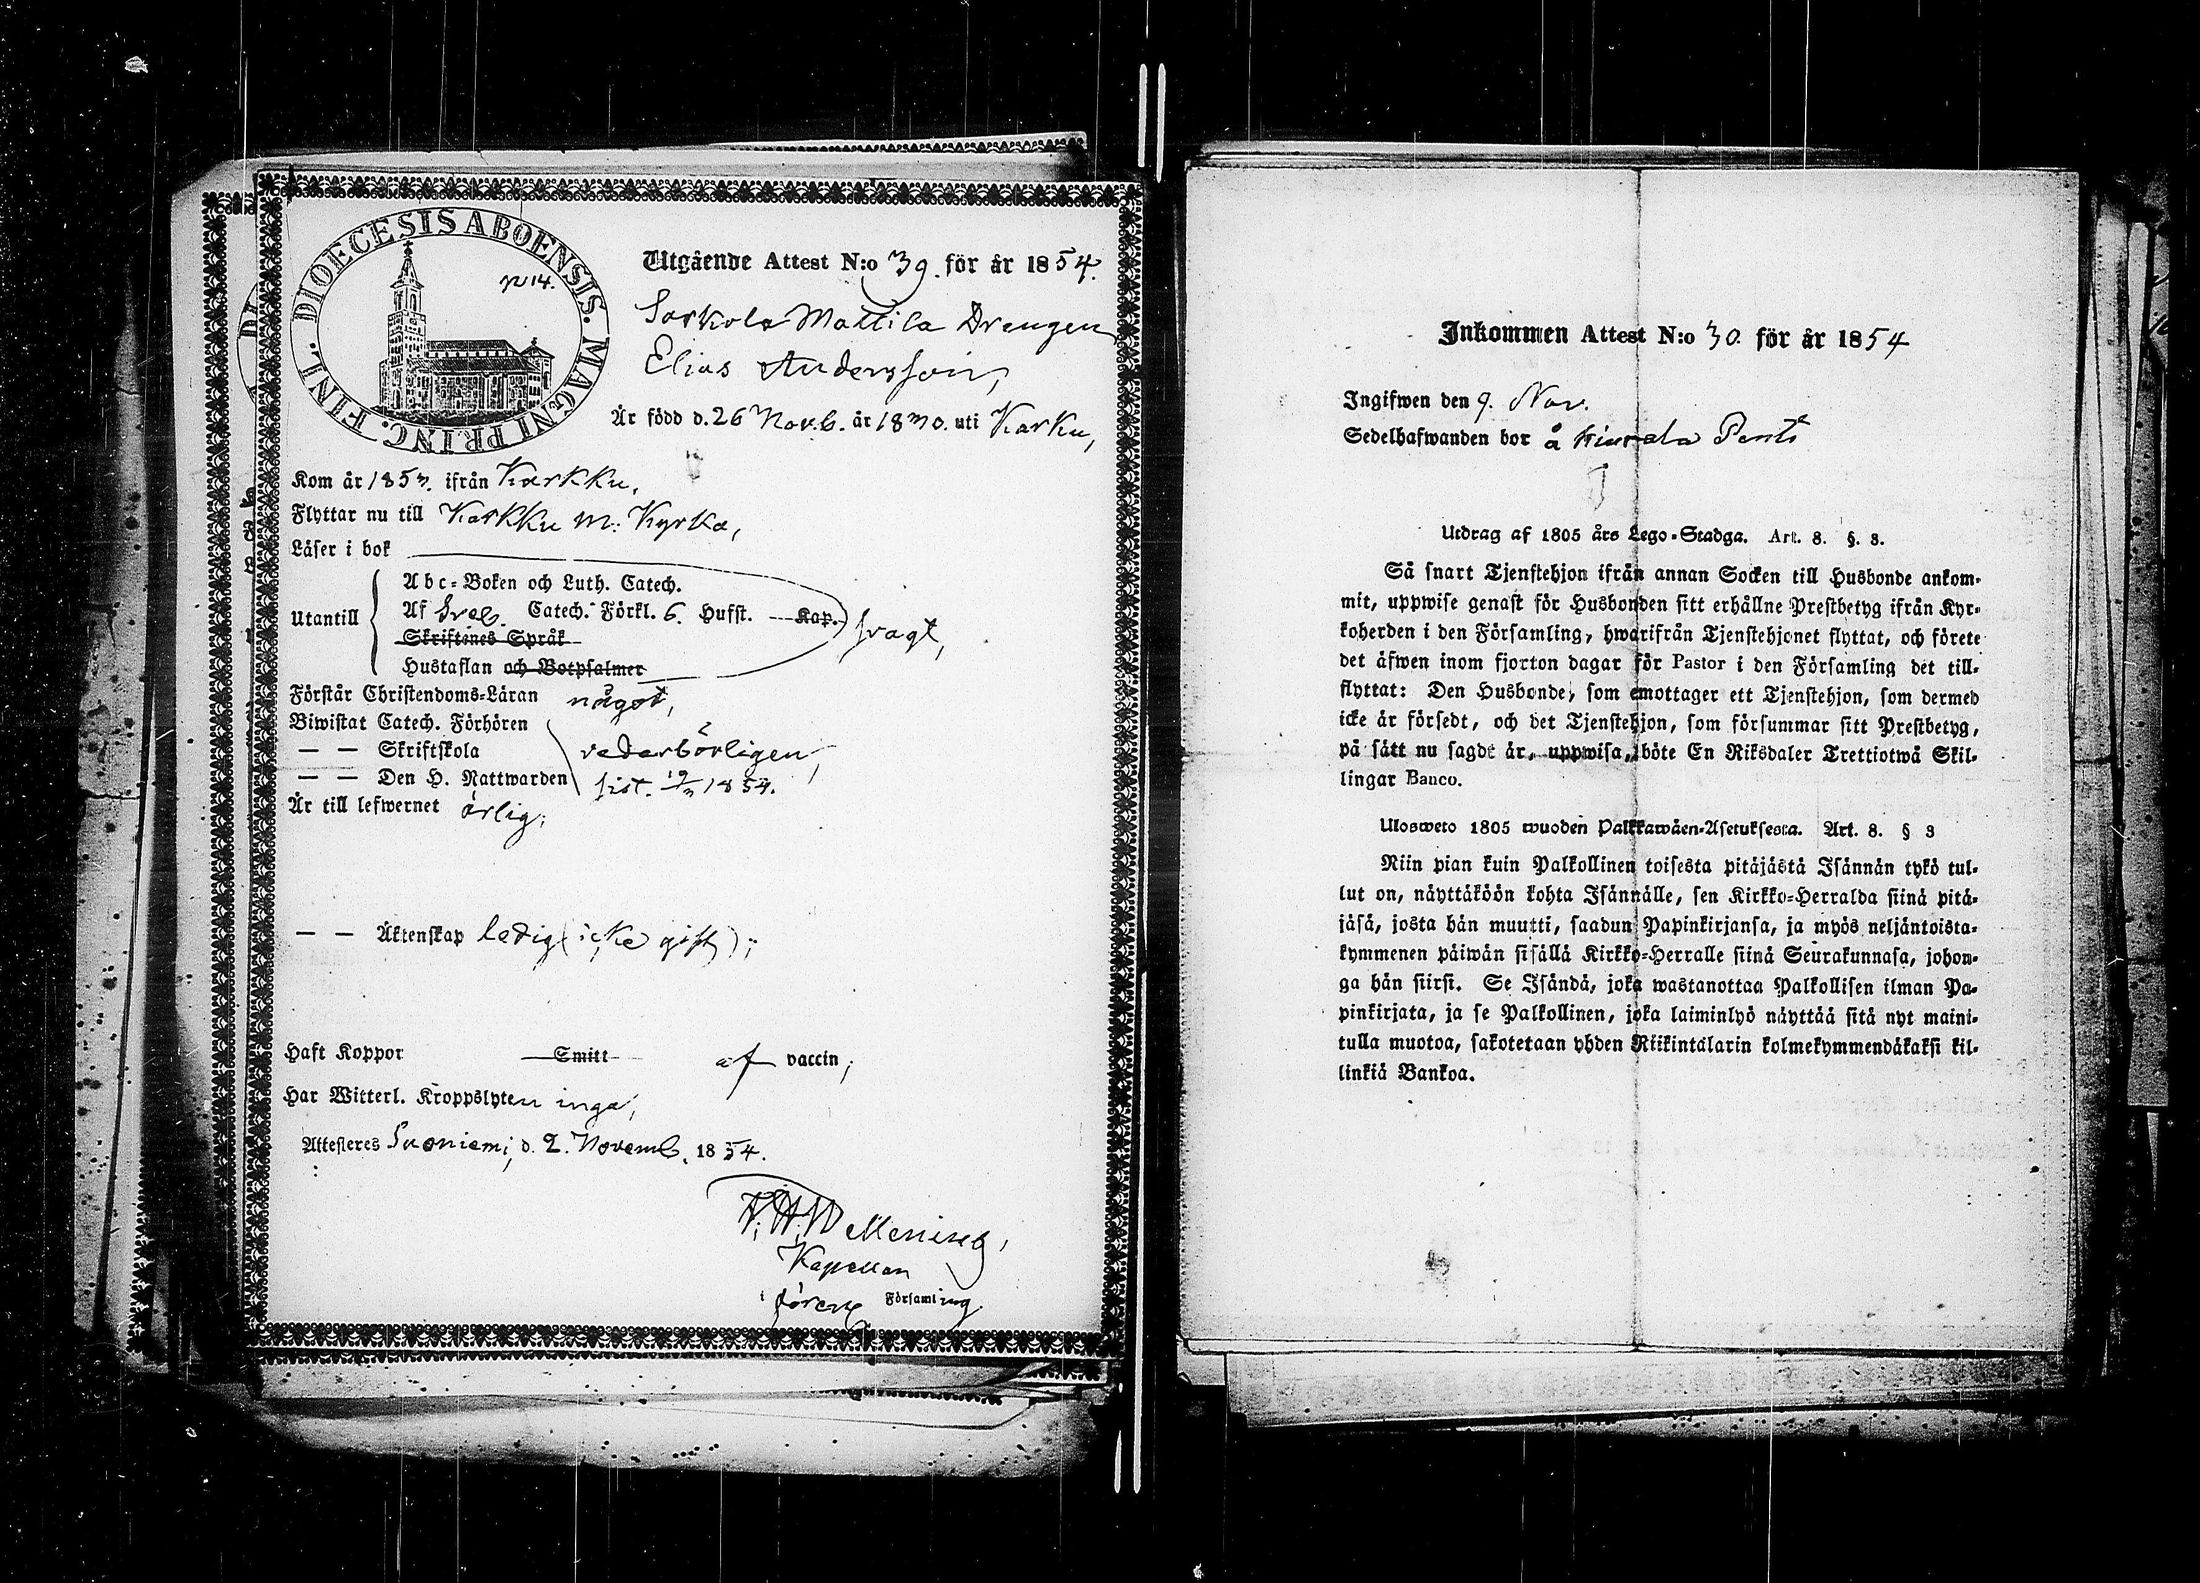 DIOECESIS ABOENSIS. MAGNI PRINC. FINL.
N 14.
Utgående Attest N:o 39. för år 1854.
Sarkola Mattila Drengen
Elias Andersson,
Är född d. 26 Novb. år 1830. uti Karku,
Kom år 1853. ifrån Karkku,
Flyttar nu till Karkku M. Kyrka,
Läser i bok
Utantill
Abc-Boken och Luth. Catech.
Af Sveb. Catech. Förkl. 6. Hufst. Kap.
Skriftenes Språk
Hustaflan och Botpsalmer
svagt,
Förstår Christendoms-Läran något,
Biwistat Catech. Förhören
— — Skriftskola vederbörligen,
— — Den H. Nattwarden sist. 1854.
Är till lefwernet ärlig;
— — Äktenskap ledig (icke gift);
Haft Koppor Smitt af vaccin;
Har Witterl. Kroppslyten inga,
Attesteres Suoniemi, d. 2. Novemb. 1854.
Kapellan
i Församling.
Inkommen Attest N:o 30. för år 1854
Ingifwen den 9. Nov.
Sedelhafwanden bor å Kiurala Pento
Utdrag af 1805 års Lego-Stadga. Art. 8. §. 3.
Så snart Tjenstehjon ifrån annan Socken till Husbonde ankom-
mit, uppwise genast för Husbonden sitt erhållne Prestbetyg ifrån Kyr-
koherden i den Församling, hwarifrån Tjenstehjonet flyttat, och förete
det äfwen inom fjorton dagar för Pastor i den Församling det till-
flyttat: Den Husbonde, som emottager ett Tjenstehjon, som dermed
icke är försedt, och det Tjenstehjon, som försummar sitt Prestbetyg,
på sätt nu sagdt är, uppwisa, böte En Riksdaler Trettiotwå Skil-
lingar Banco.
Ulosweto 1805 wuoden Palkkawäen-Asetuksesta. Art. 8. § 3
Niin pian kuin Palkollinen toisesta pitäjästä Isännän tykö tul-
lut on, näyttäköön kohta Isännälle, sen Kirkko-Herralda siinä pitä-
jäsä, josta hän muutti, saadun Papinkirjansa, ja myös neljäntoista-
kymmenen päiwän sisällä Kirkko-Herralle siinä Seurakunnasa, johon-
ga hän siirsi. Se Isändä, joka wastanottaa Palkollisen ilman Pa-
pinkirjata, ja se Palkollinen, joka laiminlyö näyttää sitä nyt maini-
tulla muotoa, sakotetaan yhden Riikintalarin kolmekymmendäkaksi kil-
linkiä Bankoa.